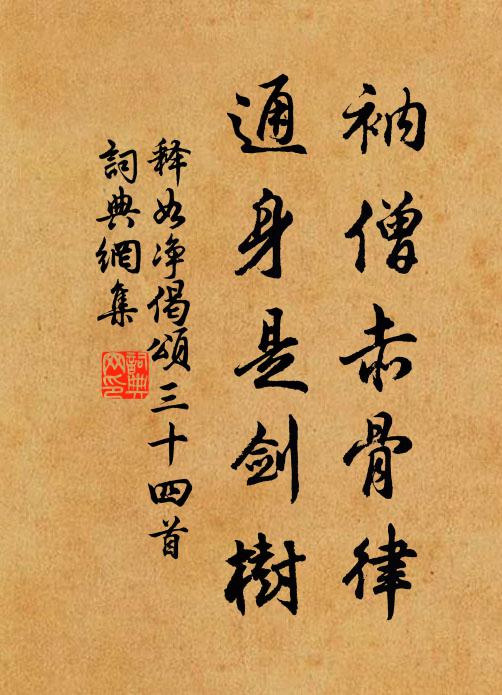 衲僧赤骨律
通身是剑樹
释如净偈頌三十四首
詞典網集
詞典
网印